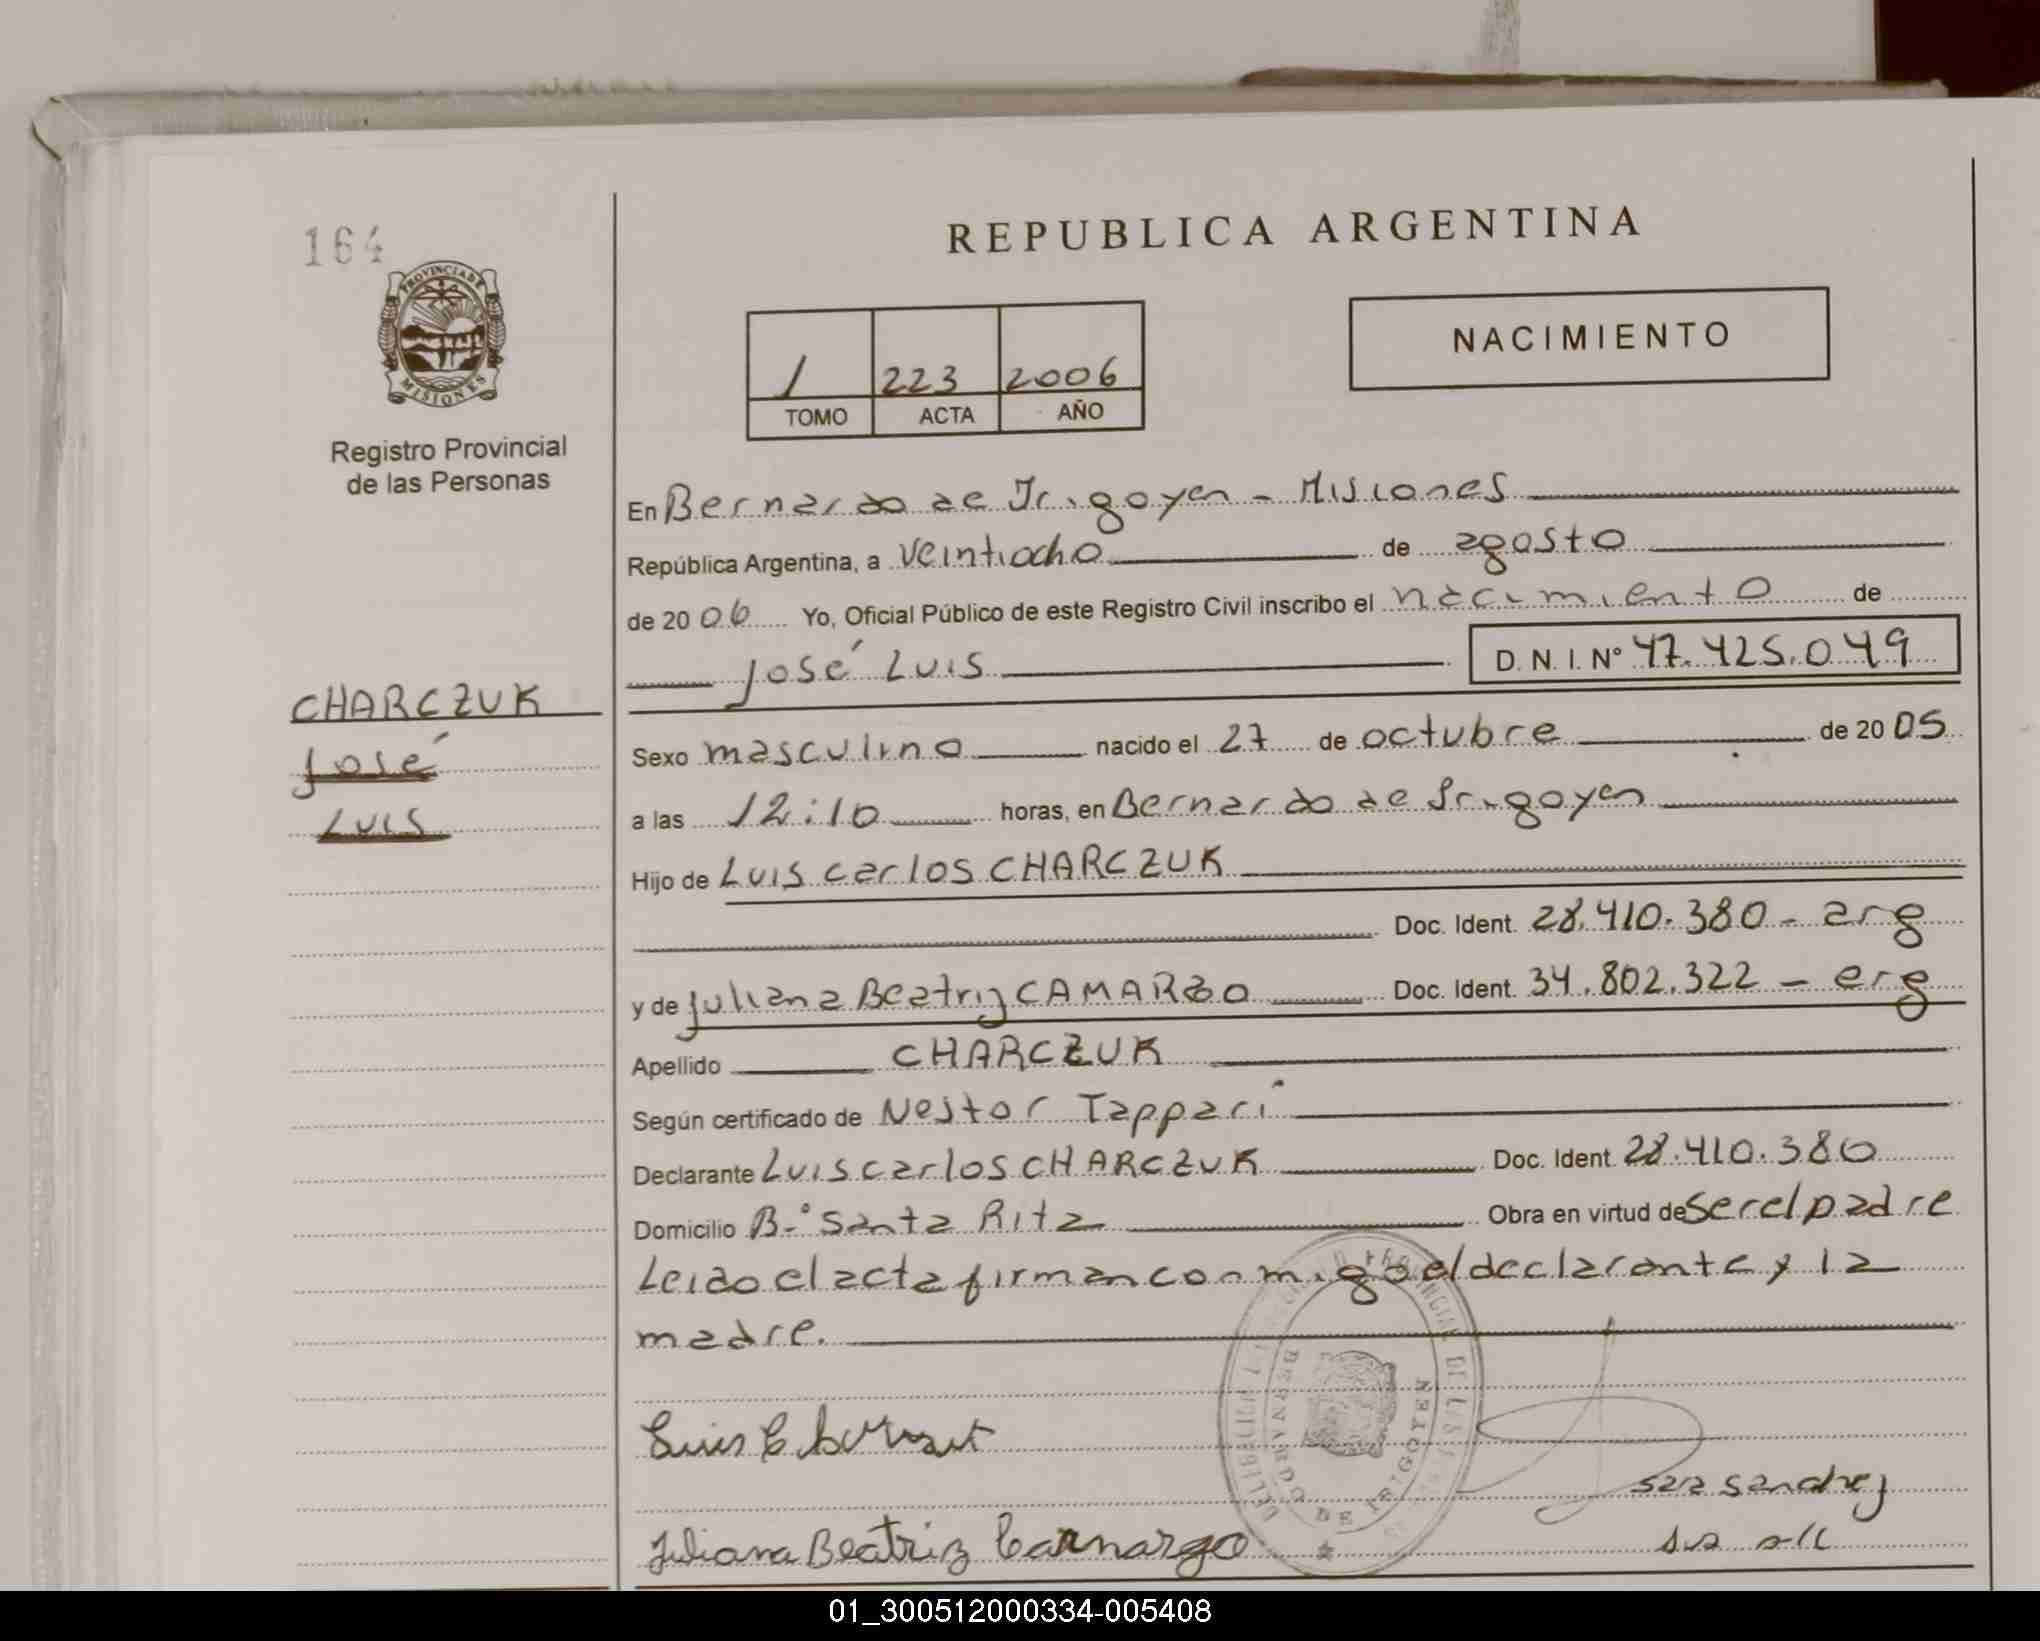 164
PROVINCIA DE
MISIONES
Registro Provincial
de las Personas
CHARCZUK
José
Luis
REPUBLICA ARGENTINA
NACIMIENTO
1 223 2006
TOMO ACTA AÑO
En Bernardo de Irigoyen - Misiones
República Argentina, a veintiocho de agosto
de 2006 Yo, Oficial Público de este Registro Civil inscribo el nacimiento de
José Luis D. N. I. Nº 47.425.049
Sexo masculino nacido el 27 de octubre de 2005
a las 12:10 horas, en Bernardo de Irigoyen
Hijo de Luis Carlos CHARCZUK
Doc. Ident. 28.410.380 - arg
y de Juliana Beatriz CAMARGO Doc. Ident. 34.802.322 - arg
Apellido CHARCZUK
Según certificado de Nestor Tapparí
Declarante Luis Carlos CHARCZUK Doc. Ident. 28.410.380
Domicilio B.º Santa Rita Obra en virtud de ser el padre
Leido el acta firman conmigo el declarante y la
madre.
Luis
BERNARDO DE IRIGOYEN
sara sanchez
Juliana Beatriz Camargo
01_300512000334-005408